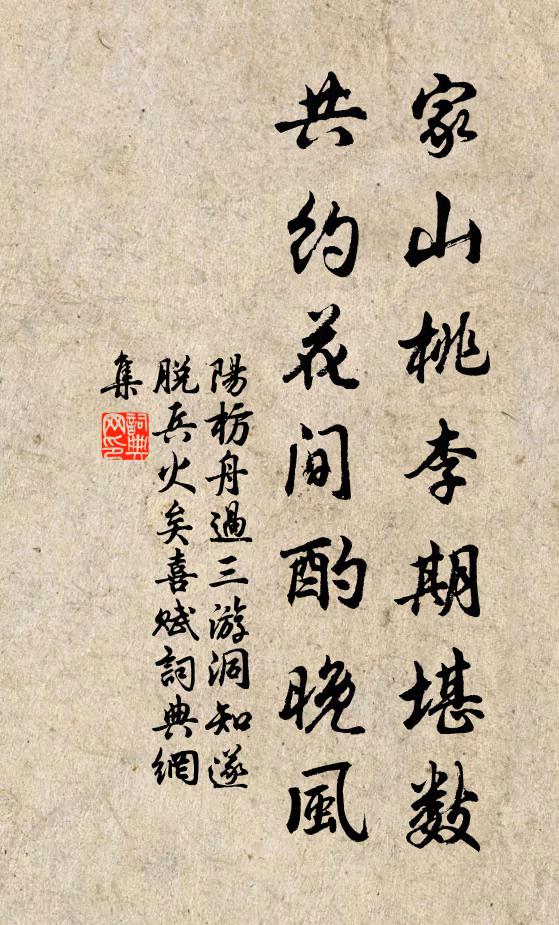 家山桃李期堪數
共約花間酌晚風
陽枋舟過三游洞知遂
脫兵火矣喜賦詞典網
集
詞典網印